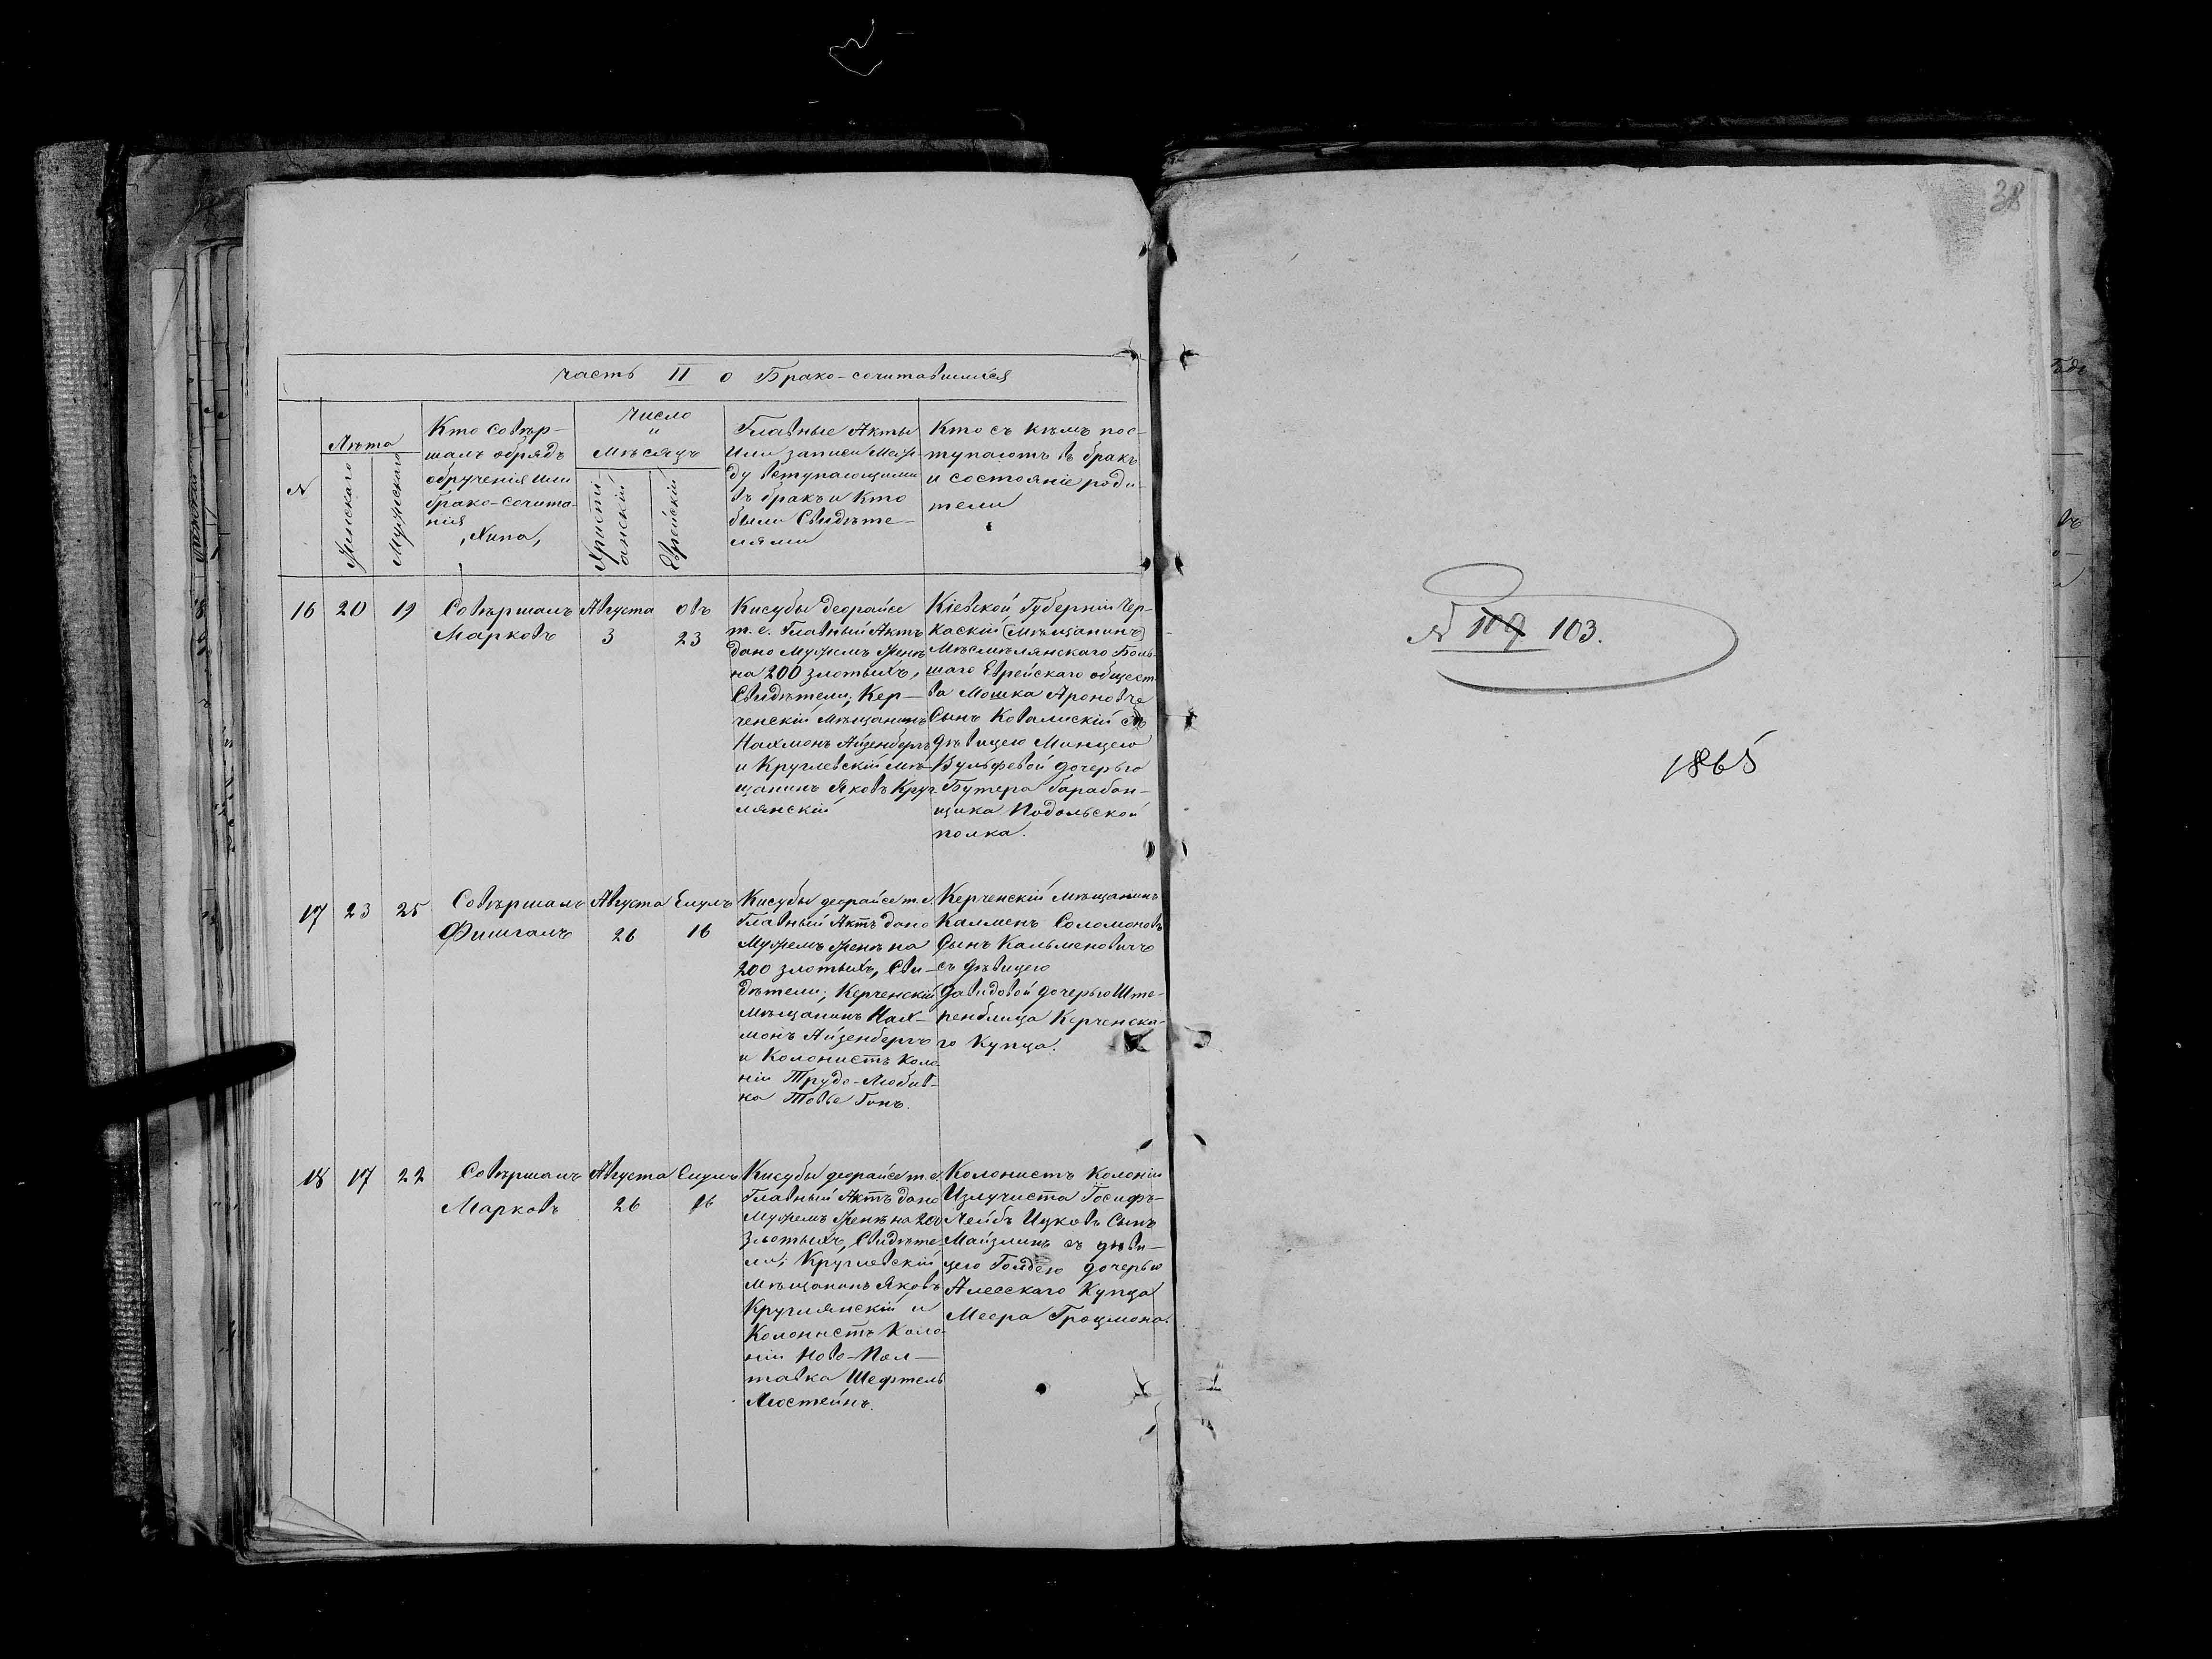 Часть II о Брако-сочитавшихся
N
Лѣта
Женскаго
Мужескаго
Кто совѣр-
шалъ обрядъ
обрученія или
брако-сочита-
нія
Хипа,
Число
и
Мѣсяцъ
Христі-
анскій
Еврейскій
Главные Акты
Или записи Меж-
ду вступающими
въ бракъ и Кто
были Свидѣте-
лями
Кто съ кѣмъ пос-
тупаютъ въ бракъ
и состояніе роди-
тели
16 20 19
Совѣршалъ
Марковъ
Августа
3
овъ
23
Кисубы деорайсе
т.е. Главный Актъ
дано Мужемъ Женѣ
на 200 злотыхъ,
Свидѣтели; Кер-
ченскій Мѣщанинъ
Нахмонъ Айзенбергъ
и Круглевскій мѣ-
щанинъ Яковъ Круг-
лянскій
Кіевской Губерніи Чер-
каскій (Мѣщанинъ)
Мѣсмѣлянскаго Боль-
шаго Еврейскаго общест-
ва Мошка Ароновъ
Сынъ Ковалискій съ
дѣвицею Минцею
Вульфевой дочерью
Бутера барабан-
щика Подольской
полка.
17 23 25
Совѣршалъ
Фишгалъ
Августа
26
Елулъ
16
Кисубы деорайсе т.е.
Главный Актъ дано
Мужемъ Женѣ на
200 злотыхъ, Сви-
дѣтели; Керченскій
Мѣщанинъ Нах-
монъ Айзенбергъ
и Колонистъ Коло-
ніи Трудо-Любив-
ка Товье Ганъ.
Керченскій мѣщанинъ
Калменъ Соломоновъ
Сынъ Кальменовичъ
съ дѣвицею
Давидовой дочерью Ште-
ренблица Керченска-
го Купца.
18 17 22
Совѣршалъ
Марковъ
Августа
26
Елулъ
16
Кисубы деорайсе т.е.
Главный Актъ дано
Мужемъ Женѣ на 200
Злотыхъ, Свидѣте-
ли; Круглевскій
Мѣщанинъ Яковъ
Круглянскій и
Колонистъ Коло-
ніи Ново-Пол-
тавка Шефтель
Люстейнъ.
Колонистъ Колоніи
Излучиста Іосифъ-
Лейбъ Ицковъ Сынъ
Майзлинъ съ дѣви-
цею Голдею дочерью
Алеескаго Купца
Меера Гроцмона.
38
N 109 103.
1865